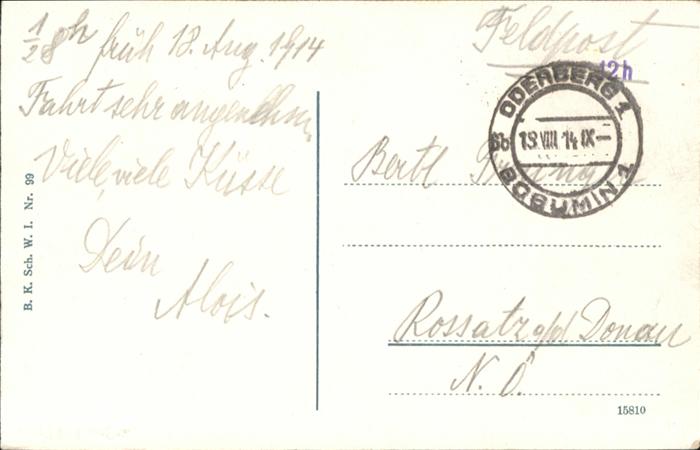 ½8h früh 18. Aug. 1914
Fahrt sehr angenehm.
Viele, viele Küsse
Dein
Alois.
B. K. Sch. W. I. Nr. 99
Feldpost
12h
ODERBERG 1
6b 18 VIII 14 IX-
BOHUMIN 1
Bertl
Rossatz a/d Donau
N. Ö.
15810